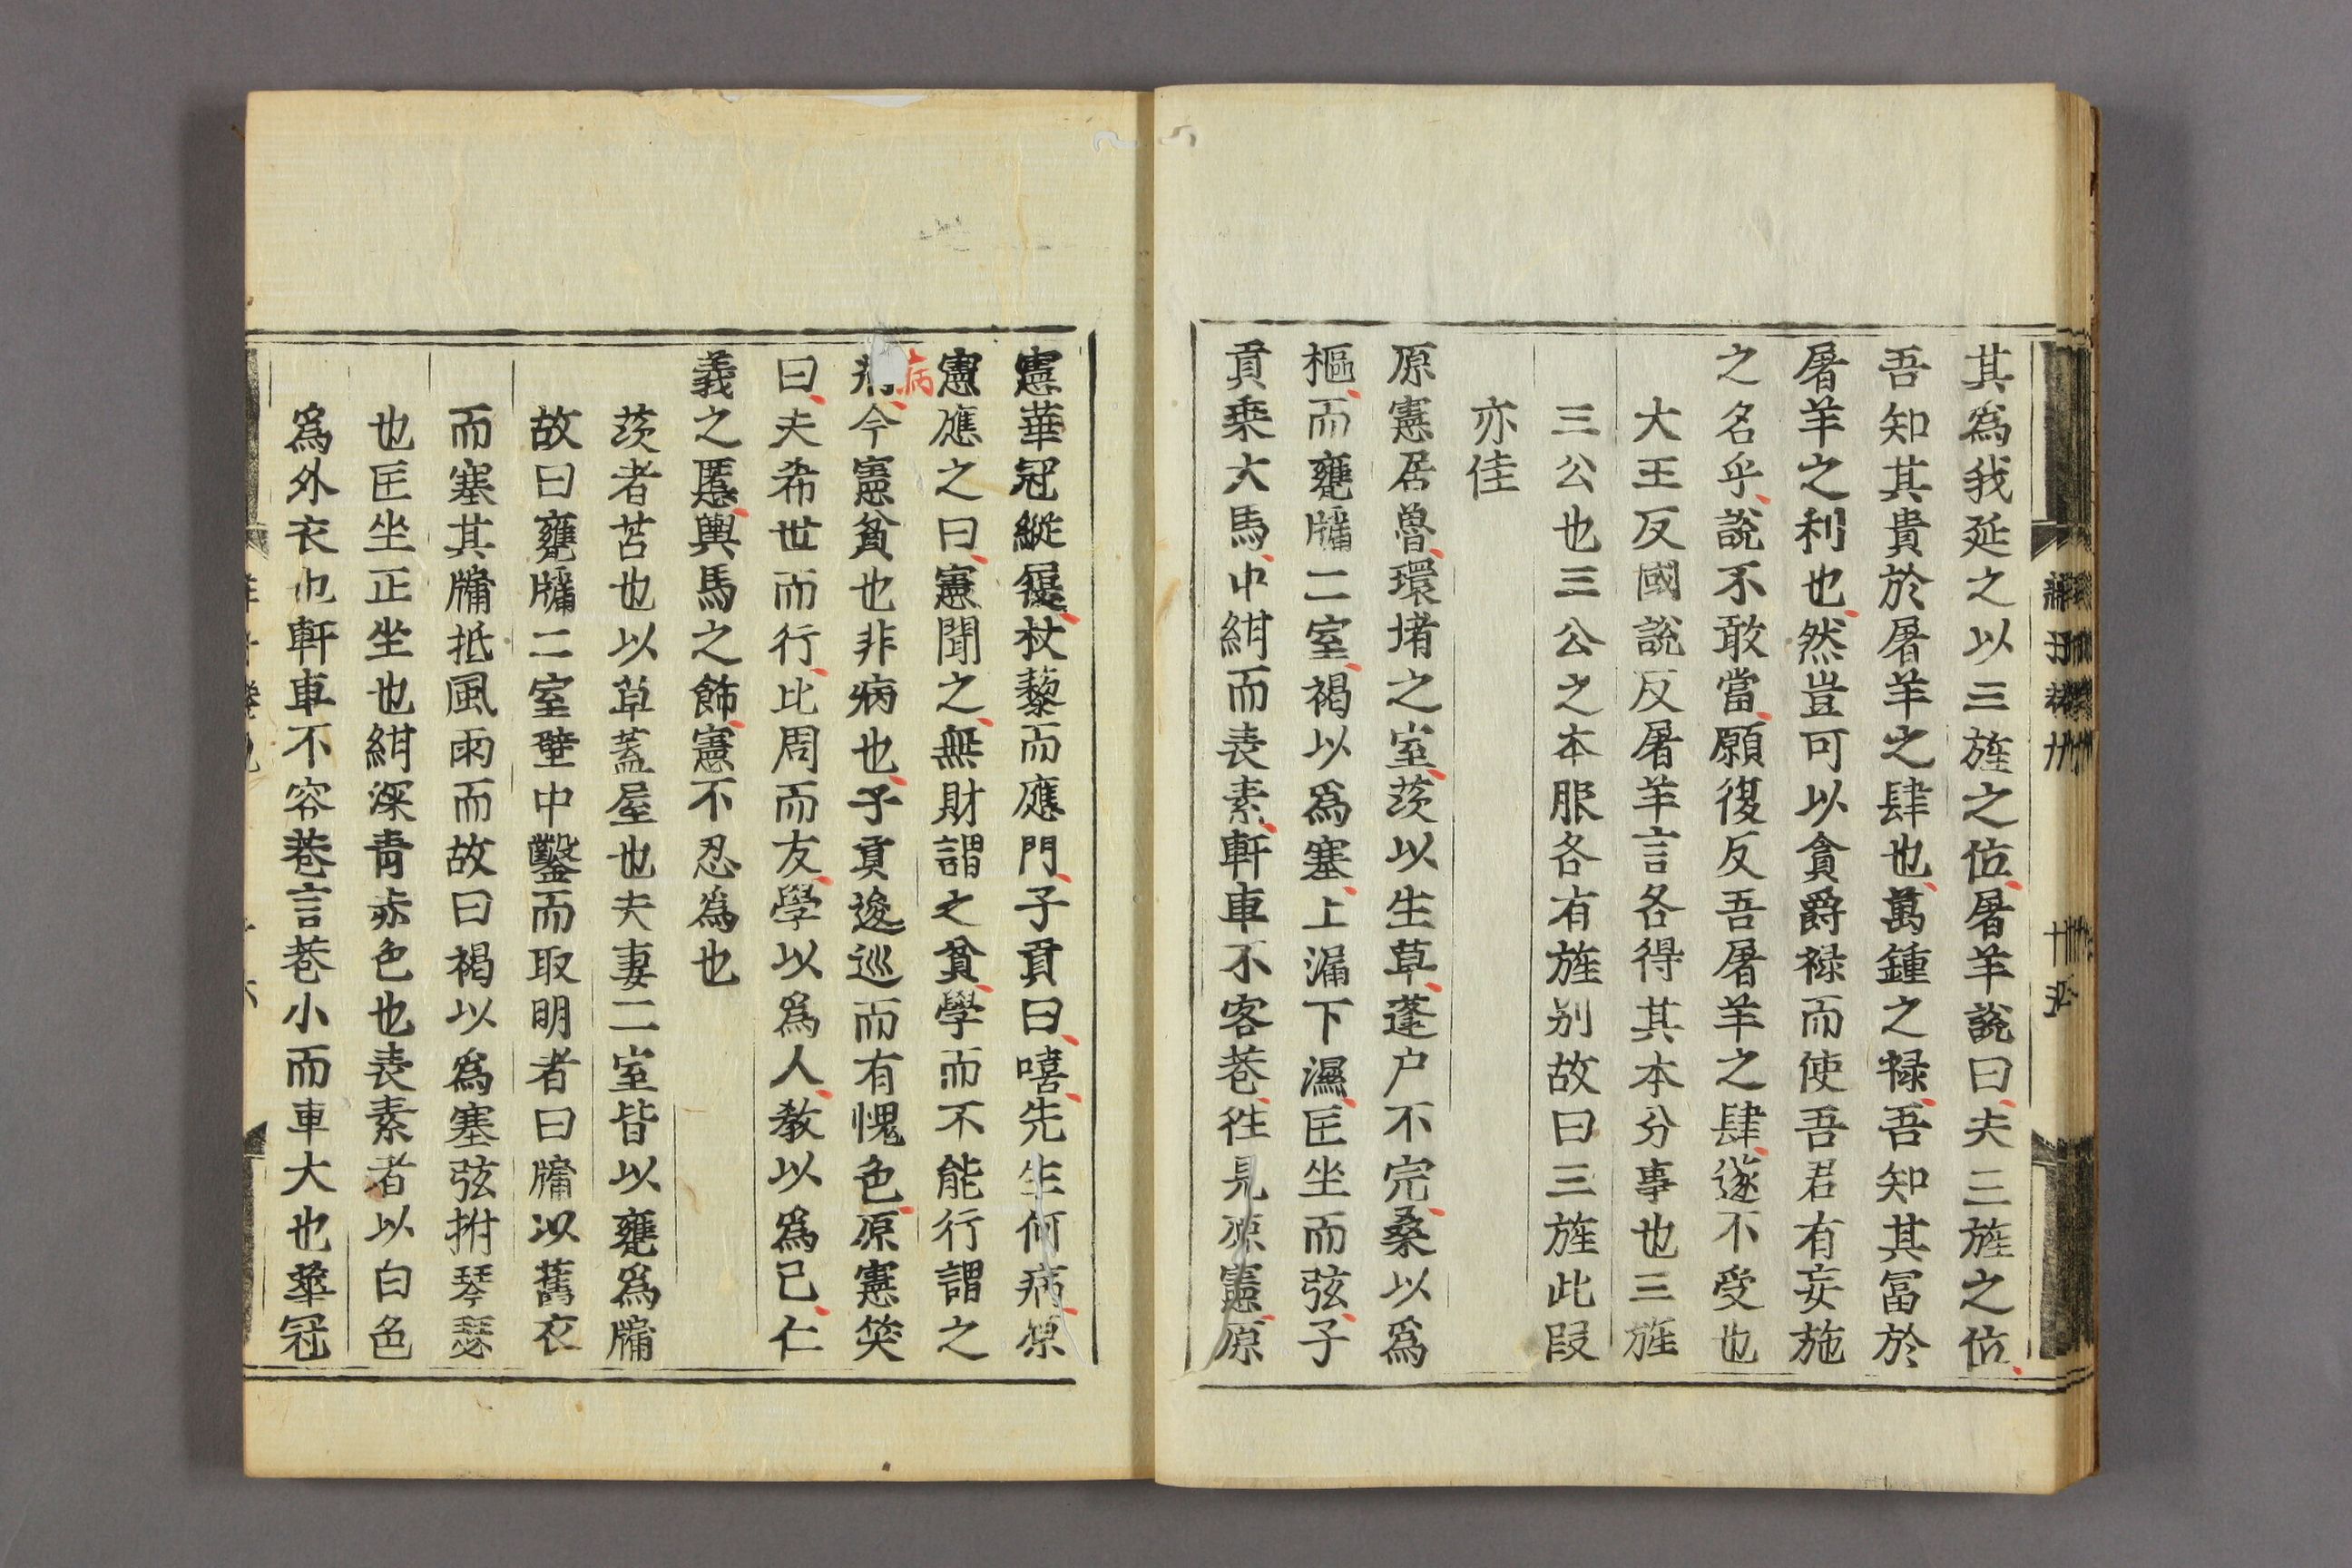 其為我延之以三旌之位屠羊說曰夫三旌之位
吾知其貴於屠羊之肆也萬鍾之祿吾知其冨於
屠羊之利也然豈可以貪爵禄而使吾君有妄施
之名乎說不敢當願復反吾屠羊之肆遂不受也
大王反國說反屠羊言各得其本分事也三旌
三公也三公之本服各有旌别故曰三旌此段
亦佳
原憲居魯環堵之室茨以生草蓬户不完桑以爲
樞而甕牖二室褐以爲塞上漏下濕匡坐而弦子
貢乗大馬中紺而表素軒車不客巷徃見原憲原
憲華冠縰履杖藜而應門子貢曰嘻先生何病原
憲應之曰憲聞之無財謂之貧學而不能行謂之
病
病今憲貧也非病也子貢逡巡而有愧色原憲笑
曰夫希世而行比周而友學以爲人教以爲已仁
義之慝輿馬之飾憲不忍為也
茨者苫也以草蓋屋也夫妻二室皆以甕爲牖
故曰甕牖二室壁中鑿而取明者曰牖以舊衣
而塞其牖抵風雨而故曰褐以爲塞弦拊琴瑟
也匡坐正坐也紺深青赤色也表素者以白色
爲外衣也軒車不容巷言巷小而車大也華冠